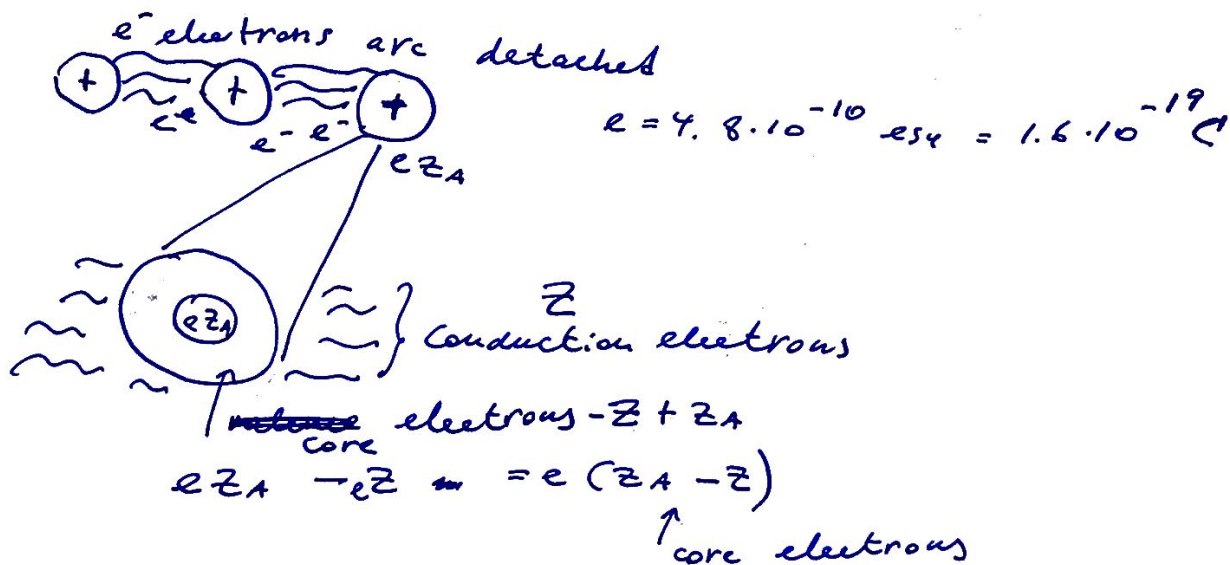 e⁻ electrons are detached
+ + +
e⁻e e⁻ e⁻
e = 4.8·10⁻¹⁰ esu = 1.6·10⁻¹⁹ C
eZ_A
eZ_A
Z
conduction electrons
core electrons - Z + Z_A
eZ_A - eZ = e(Z_A - Z)
core electrons